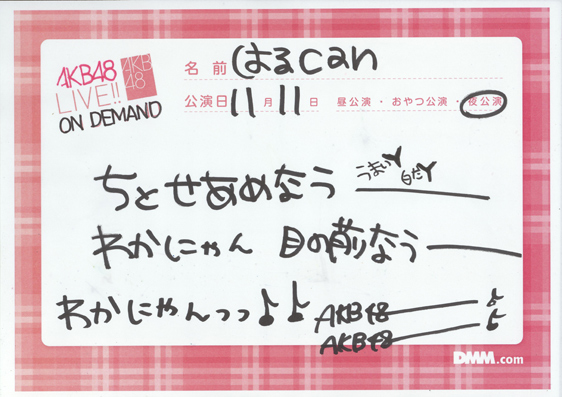 AKB48
LIVE!!
ON DEMAND
AKB
48
名前 はるcan
公演日 11月11日 昼公演・おやつ公演・夜公演
ちとせあめなう うまいY 白だY
わかにゃん 目の前なう
わかにゃんっっ♪♪ AKB48 ♪
AKB48 ♪
DMM.com